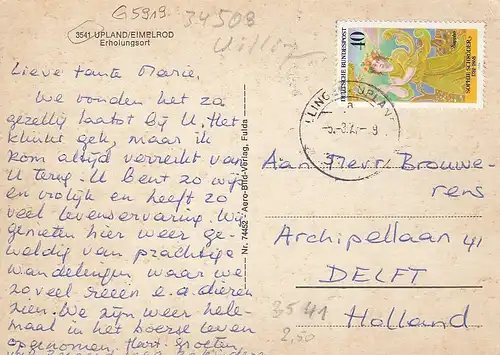 G5919
34508
3541 UPLAND/EIMELROD
Erholungsort
Lieve tante Marie.
We vonden het zo
gezellig laatst bij U. Het
klinkt gek, maar ik
kom altijd verrijkt van
U terug. U bent zo wijs
en vrolijk en heeft zo
veel levenservaring. Wij
genieten hier weer ge-
weldig van prachtige
wandelingen waar we
zoveel reeën e.a. dieren
zien. We zijn weer hele-
maal in het boerse leven
opgenomen, Hart. Groeten
Nr. 74452 Aero-Bild-Verlag, Fulda
DEUTSCHE BUNDESPOST
40
SOPHIE SCHRÖDER
Sappho
Aan Mevr Brouwe-
rens
Archipellaan 41
DELFT
Holland
3541
2,50